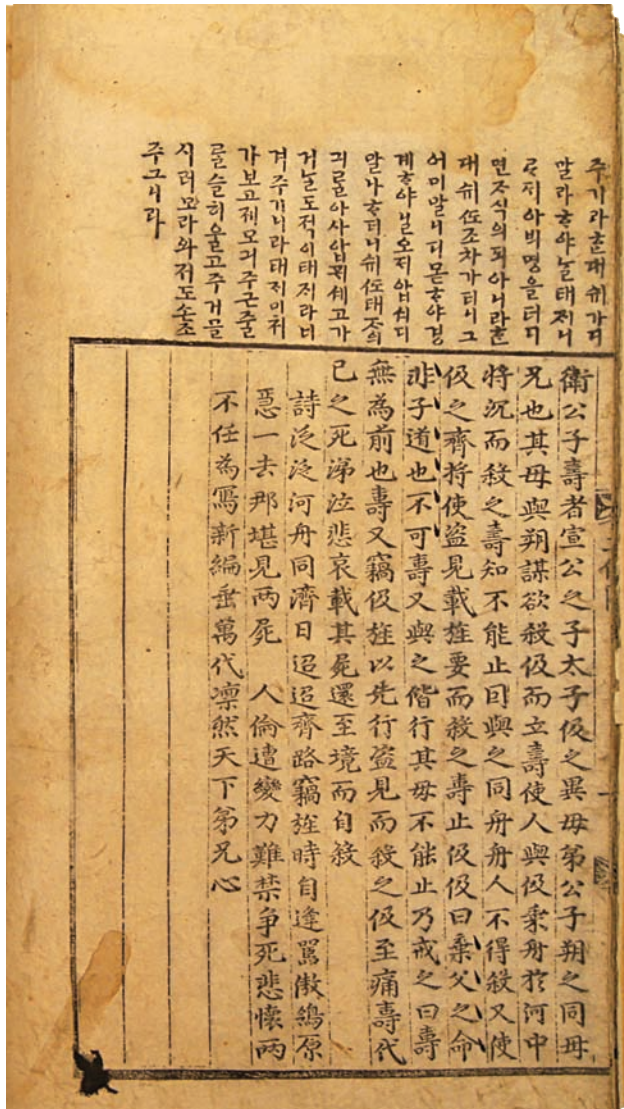 주기라ᄒᆞᆫ대쉬가디
말라ᄒᆞ야ᄂᆞᆯ태ᄌᆡ니
ᄅᆞᄃᆡ아븨명을더디
면ᄌᆞ식의되아니라ᄒᆞᆫ
대쉬伋조차가더니그
어미말니디몯ᄒᆞ야경
계ᄒᆞ야닐오ᄃᆡ압셔디
말나ᄒᆞ더니쉬伋태ᄌᆞ의
긔ᄅᆞᆯ아사압셰고가
거ᄂᆞᆯ도적이태ᄌᆡ라너
겨주기니라태ᄌᆡ미처
가보고제모긔주근줄
ᄅᆞᆯ슬히울고주거믈
시러도라와저도손조
주그니라
衛公子壽者宣公之子太子伋之異母弟公子朔之同母
兄也其母與朔謀欲殺伋而立壽使人與伋乘舟於河中
將沉而殺之壽知不能止因與之同舟舟人不得殺又使
伋之齊將使盜見載旌要而殺之壽止伋伋曰棄父之命
非子道也不可壽又與之偕行其母不能止乃戒之曰壽
無為前也壽又竊伋旌以先行盜見而殺之伋至痛壽代
已之死涕泣悲哀載其屍還至境而自殺
詩泛泛河舟同濟日迢迢齊路竊旌時自逢罵傲鴒原
惡一去那堪見兩屍 人倫遭變力難禁爭死悲懷兩
不任為寫新編垂萬代凛然天下弟兄心